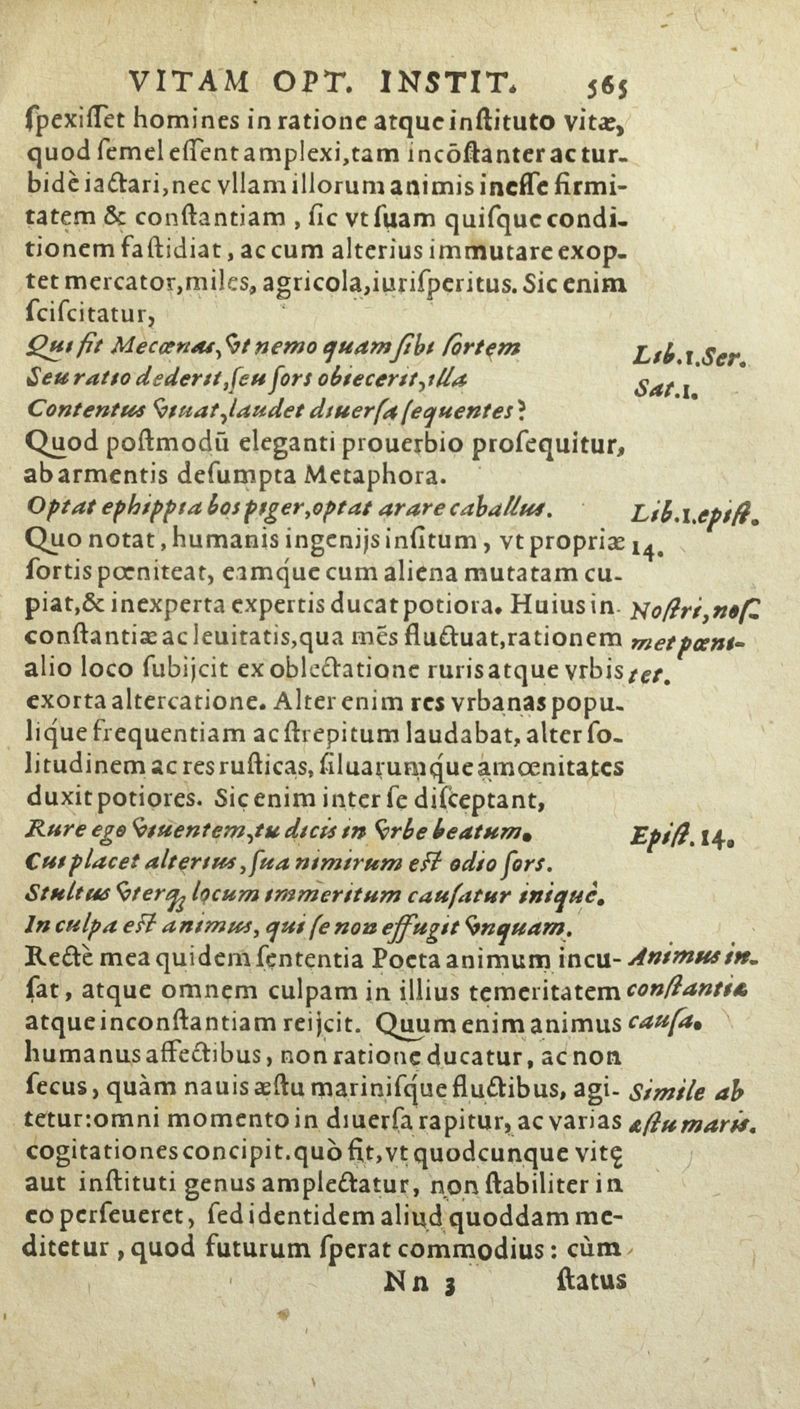 VITAM OPT. INSTIT. 565
ſpexiſſet homines in ratione atque inſtituto vitæ,
quod ſemel eſſent amplexi, tam incōſtanter ac tur-
bidè iactari, nec vllam illorum animis ineſſe firmi-
tatem & conſtantiam, ſic vt ſuam quiſque condi-
tionem faſtidiat, ac cum alterius immutare exop-
tet mercator, miles, agricola, iuriſperitus. Sic enim
ſciſcitatur,
Qui fit Mecœnas, vt nemo quam ſibi ſortem
Lib.1.Ser.
Seu ratio dederit, ſeu fors obiecerit, illa
Sat.1.
Contentus viuat, laudet diuerſa ſequentes?
Quod poſtmodū eleganti prouerbio proſequitur,
ab armentis deſumpta Metaphora.
Optat ephippia bos piger, optat arare caballus.
Lib.1.epiſt.
Quo notat, humanis ingenijs inſitum, vt propriæ
14.
ſortis pœniteat, eamque cum aliena mutatam cu-
piat, & inexperta expertis ducat potiora. Huius in-
Noſtri, noſ-
conſtantiæ ac leuitatis, qua mēs fluctuat, rationem
met pœni-
alio loco ſubijcit ex oblectatione ruris atque vrbis
tet.
exorta altercatione. Alter enim res vrbanas popu-
lique frequentiam ac ſtrepitum laudabat, alter ſo-
litudinem ac res ruſticas, ſiluarumque amœnitates
duxit potiores. Sic enim inter ſe diſceptant,
Rure ego viuentem, tu dicis in vrbe beatum.
Epiſt. 14.
Cui placet alterius, ſua nimirum eſt odio ſors.
Stultus vterq; locum immeritum cauſatur iniquè.
In culpa eſt animus, qui ſe non effugit vnquam.
Rectè mea quidem ſententia Poeta animum incu-
Animus in-
ſat, atque omnem culpam in illius temeritatem
conſtantiæ
atque inconſtantiam reijcit. Quum enim animus
cauſa.
humanus affectibus, non ratione ducatur, ac non
ſecus, quàm nauis æſtu mariniſque fluctibus, agi-
Simile ab
tetur: omni momento in diuerſa rapitur, ac varias
æſtu maris.
cogitationes concipit. quò fit, vt quodcunque vitę
aut inſtituti genus amplectatur, non ſtabiliter in
eo perſeueret, ſed identidem aliud quoddam me-
ditetur, quod futurum ſperat commodius: cùm
Nn 3 ſtatus